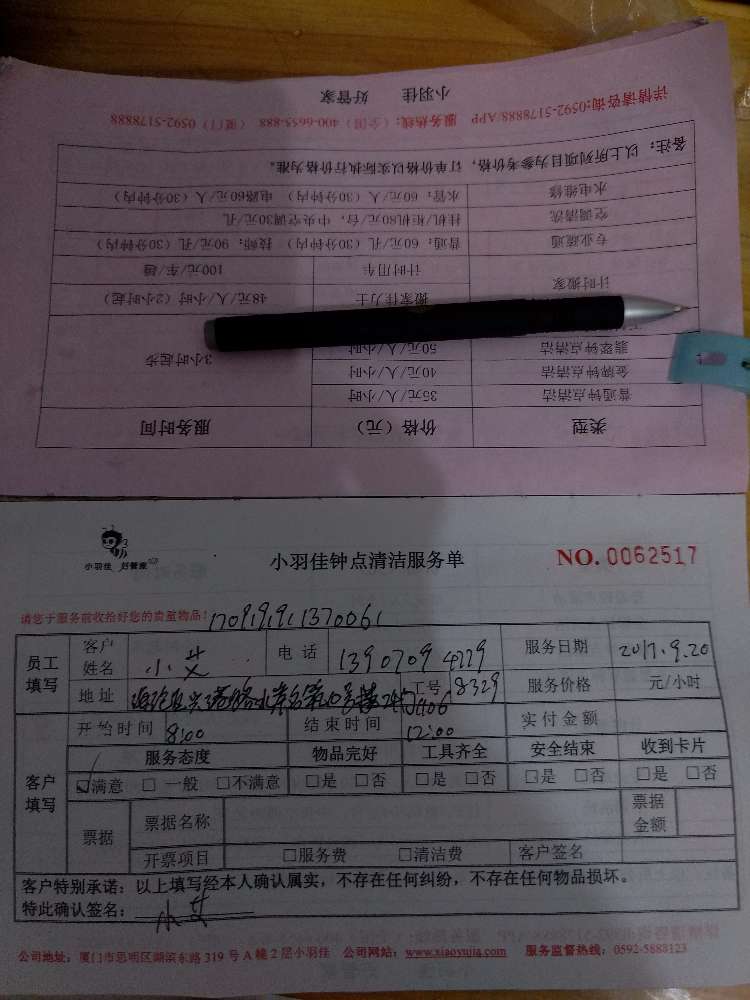 类型 价格（元） 服务时间
普通钟点清洁 35元/人/小时
金牌钟点清洁 40元/人/小时 3小时起步
翡翠钟点清洁 50元/人/小时
计时搬家 搬家佳力士 48元/人/小时（2小时起）
计时用车 100元/车/趟
专业疏通 普通：60元/孔（30分钟内） 技师：90元/孔（30分钟内）
空调清洗 挂机/柜机80元/台，中央空调30元/孔
水电维修 水管：60元/人（30分钟内） 电路60元/人（30分钟内）
备注：以上所列项目为参考价格，订单价格以实际执行价格为准。
详情请咨询:0592-5178888/APP 服务热线:（全国）400-6655-888 （厦门）0592-5178888
小羽佳 好管家
小羽佳 好管家
小羽佳钟点清洁服务单 NO. 0062517
请您于服务前收拾好您的贵重物品！
员工填写 客户姓名 小艾 电话 13907094229 服务日期 2017.9.20
地址 工号 8329 服务价格 元/小时
客户填写 开始时间 8:00 结束时间 12:00 实付金额
服务态度 物品完好 工具齐全 安全结束 收到卡片
☑满意 □一般 □不满意 □是 □否 □是 □否 □是 □否 □是 □否
票据 票据名称 票据金额
开票项目 □服务费 □清洁费 客户签名
客户特别承诺：以上填写经本人确认属实，不存在任何纠纷，不存在任何物品损坏。
特此确认签名： 小艾
公司地址：厦门市思明区湖滨东路319号A幢2层小羽佳 公司网站：www.xiaoyujia.com 服务监督热线：0592-5888123